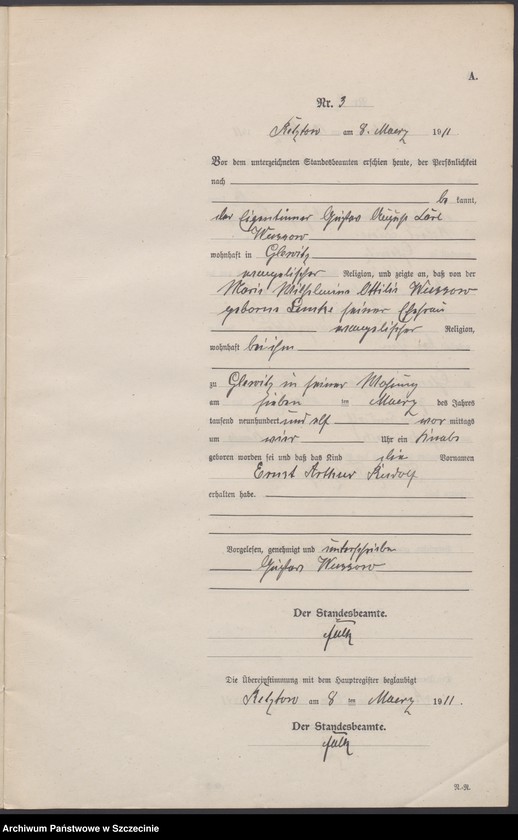 A.
Nr. 3
Retztow am 8. Maerz 1911
Vor dem unterzeichneten Standesbeamten erschien heute, der Persönlichkeit
nach
be kannt,
der Eigentümer Gustav August Carl
Wussow
wohnhaft in Glewitz
evangelischer Religion, und zeigte an, daß von der
Marie Wilhelmine Ottilie Wussow
geborene Lemke seiner Ehefrau
evangelischer Religion,
wohnhaft bei ihm
zu Glewitz in seiner Wohnung
am sieben ten Maerz des Jahres
tausend neunhundert und elf vor mittags
um vier Uhr ein Knabe
geboren worden sei und daß das Kind die Vornamen
Ernst Arthur Rudolf
erhalten habe.
Vorgelesen, genehmigt und unterschrieben
Gustav Wussow
Der Standesbeamte.
Die Übereinstimmung mit dem Hauptregister beglaubigt
Retztow am 8 ten Maerz 1911.
Der Standesbeamte.
N.-R.
Archiwum Państwowe w Szczecinie